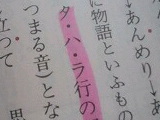 →あんめり→あ
に物語といふもの
タ・ハ・ラ行の
つまる音）とな
立って